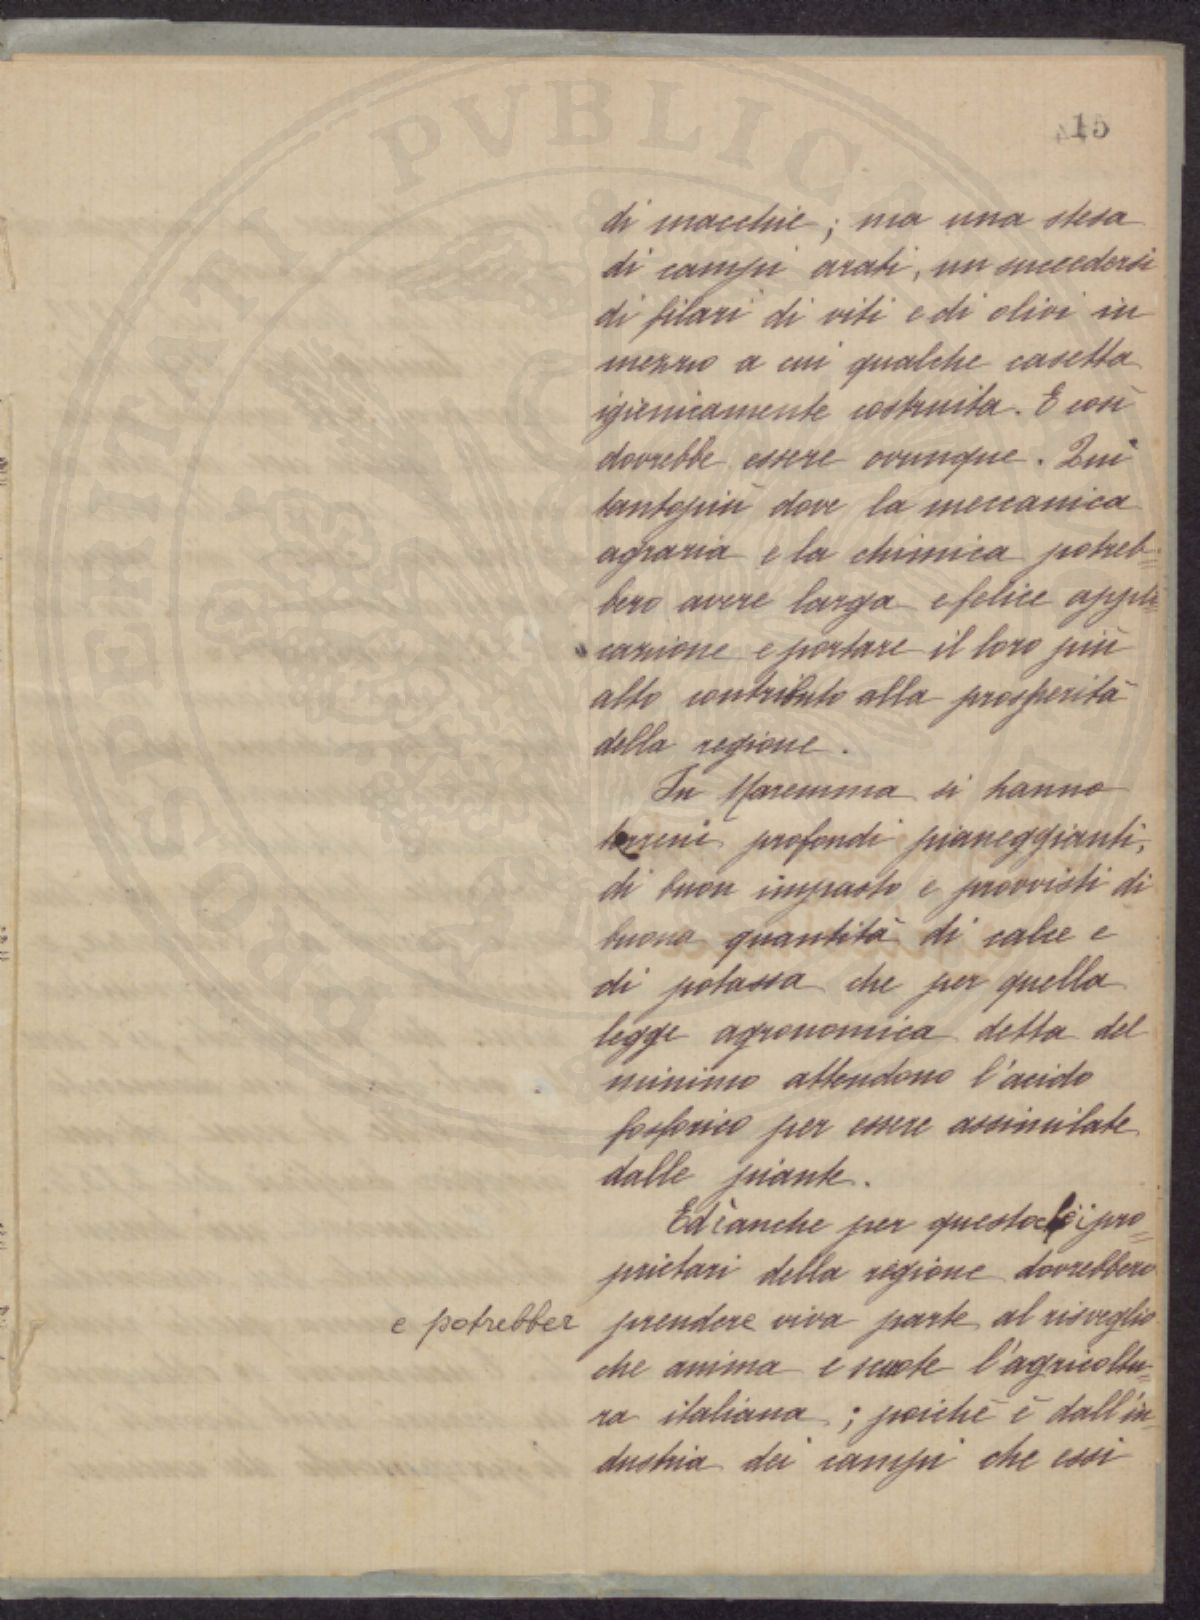 15
PROSPERITATI PUBLICAE
di macchie; ma una stesa
di campi arati, un succedersi
di filari di viti e di olivi in
mezzo a cui qualche casetta
igienicamente costruita. E così
dovrebbe essere ovunque. Qui
tantopiù dove la meccanica
agraria e la chimica potreb=
bero avere larga e felice appli=
cazione e portare il loro più
alto contributo alla prosperità
della regione.
In Maremma si hanno
terreni profondi pianeggianti,
di buon impasto e provvisti di
buona quantità di calce e
di potassa che per quella
legge agronomica detta del
minimo attendono l'acido
fosforico per essere assimilate
dalle piante.
Ed è anche per questo che i pro=
prietari della regione dovrebbero
e potrebber
prendere viva parte al risveglio
che anima e scuote l'agricoltu=
ra italiana; poichè è dall'in=
dustria dei campi che essi